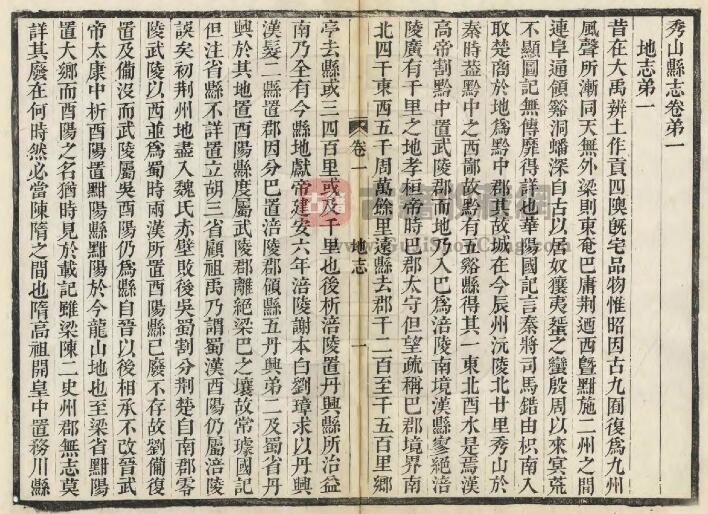 秀山縣志卷弟一
地志弟一
昔在大禹辨土作貢四隩旣宅品物惟昭因古九囿復爲九州
風聲所漸同天無外梁則東兗巴庸荆迺西曁黔施二州之間
連阜通傾谿洞蟠深自古以居奴獽夷蜑之蠻殷周以來㝠荒
不顯圖記無傳靡得詳也華陽國記言秦將司馬錯由枳南入
取楚商於地爲黔中郡其故城在今辰州沅陵北廿里秀山於
秦時葢黔中之西鄙故黔有五谿縣得其一東北酉水是焉漢
高帝割黔中置武陵郡而地乃入巴爲涪陵南境漢縣寥絕涪
陵廣有千里之地孝桓帝時巴郡太守但望疏稱巴郡境界南
北四千東西五千周萬餘里遠縣去郡千二百至千五百里鄉
亭去縣或三四百里或及千里也後析涪陵置丹興縣所治益
南乃全有今縣地獻帝建安六年涪陵謝本白劉璋求以丹興
漢髮二縣置郡因分巴置涪陵郡領縣五丹興弟二及蜀省丹
興於其地置酉陽縣度屬武陵郡離絕梁巴之壤故常璩國記
但注省縣不詳置立胡三省顧祖禹乃謂蜀漢酉陽仍屬涪陵
誤矣初荆州地盡入魏氏赤壁敗後吳蜀割分荆楚自南郡零
陵武陵以西並爲蜀時兩漢所置酉陽縣已廢不存故劉備復
置及備沒而武陵屬吳酉陽仍爲縣自晉以後相承不改晉武
帝太康中析酉陽置黚陽縣黚陽於今龍山地也至梁省黚陽
置大鄉而酉陽之名猶時見於載記雖梁陳二史州郡無志莫
詳其廢在何時然必當陳隋之間也隋高祖開皇中置務川縣
卷一
地志
一